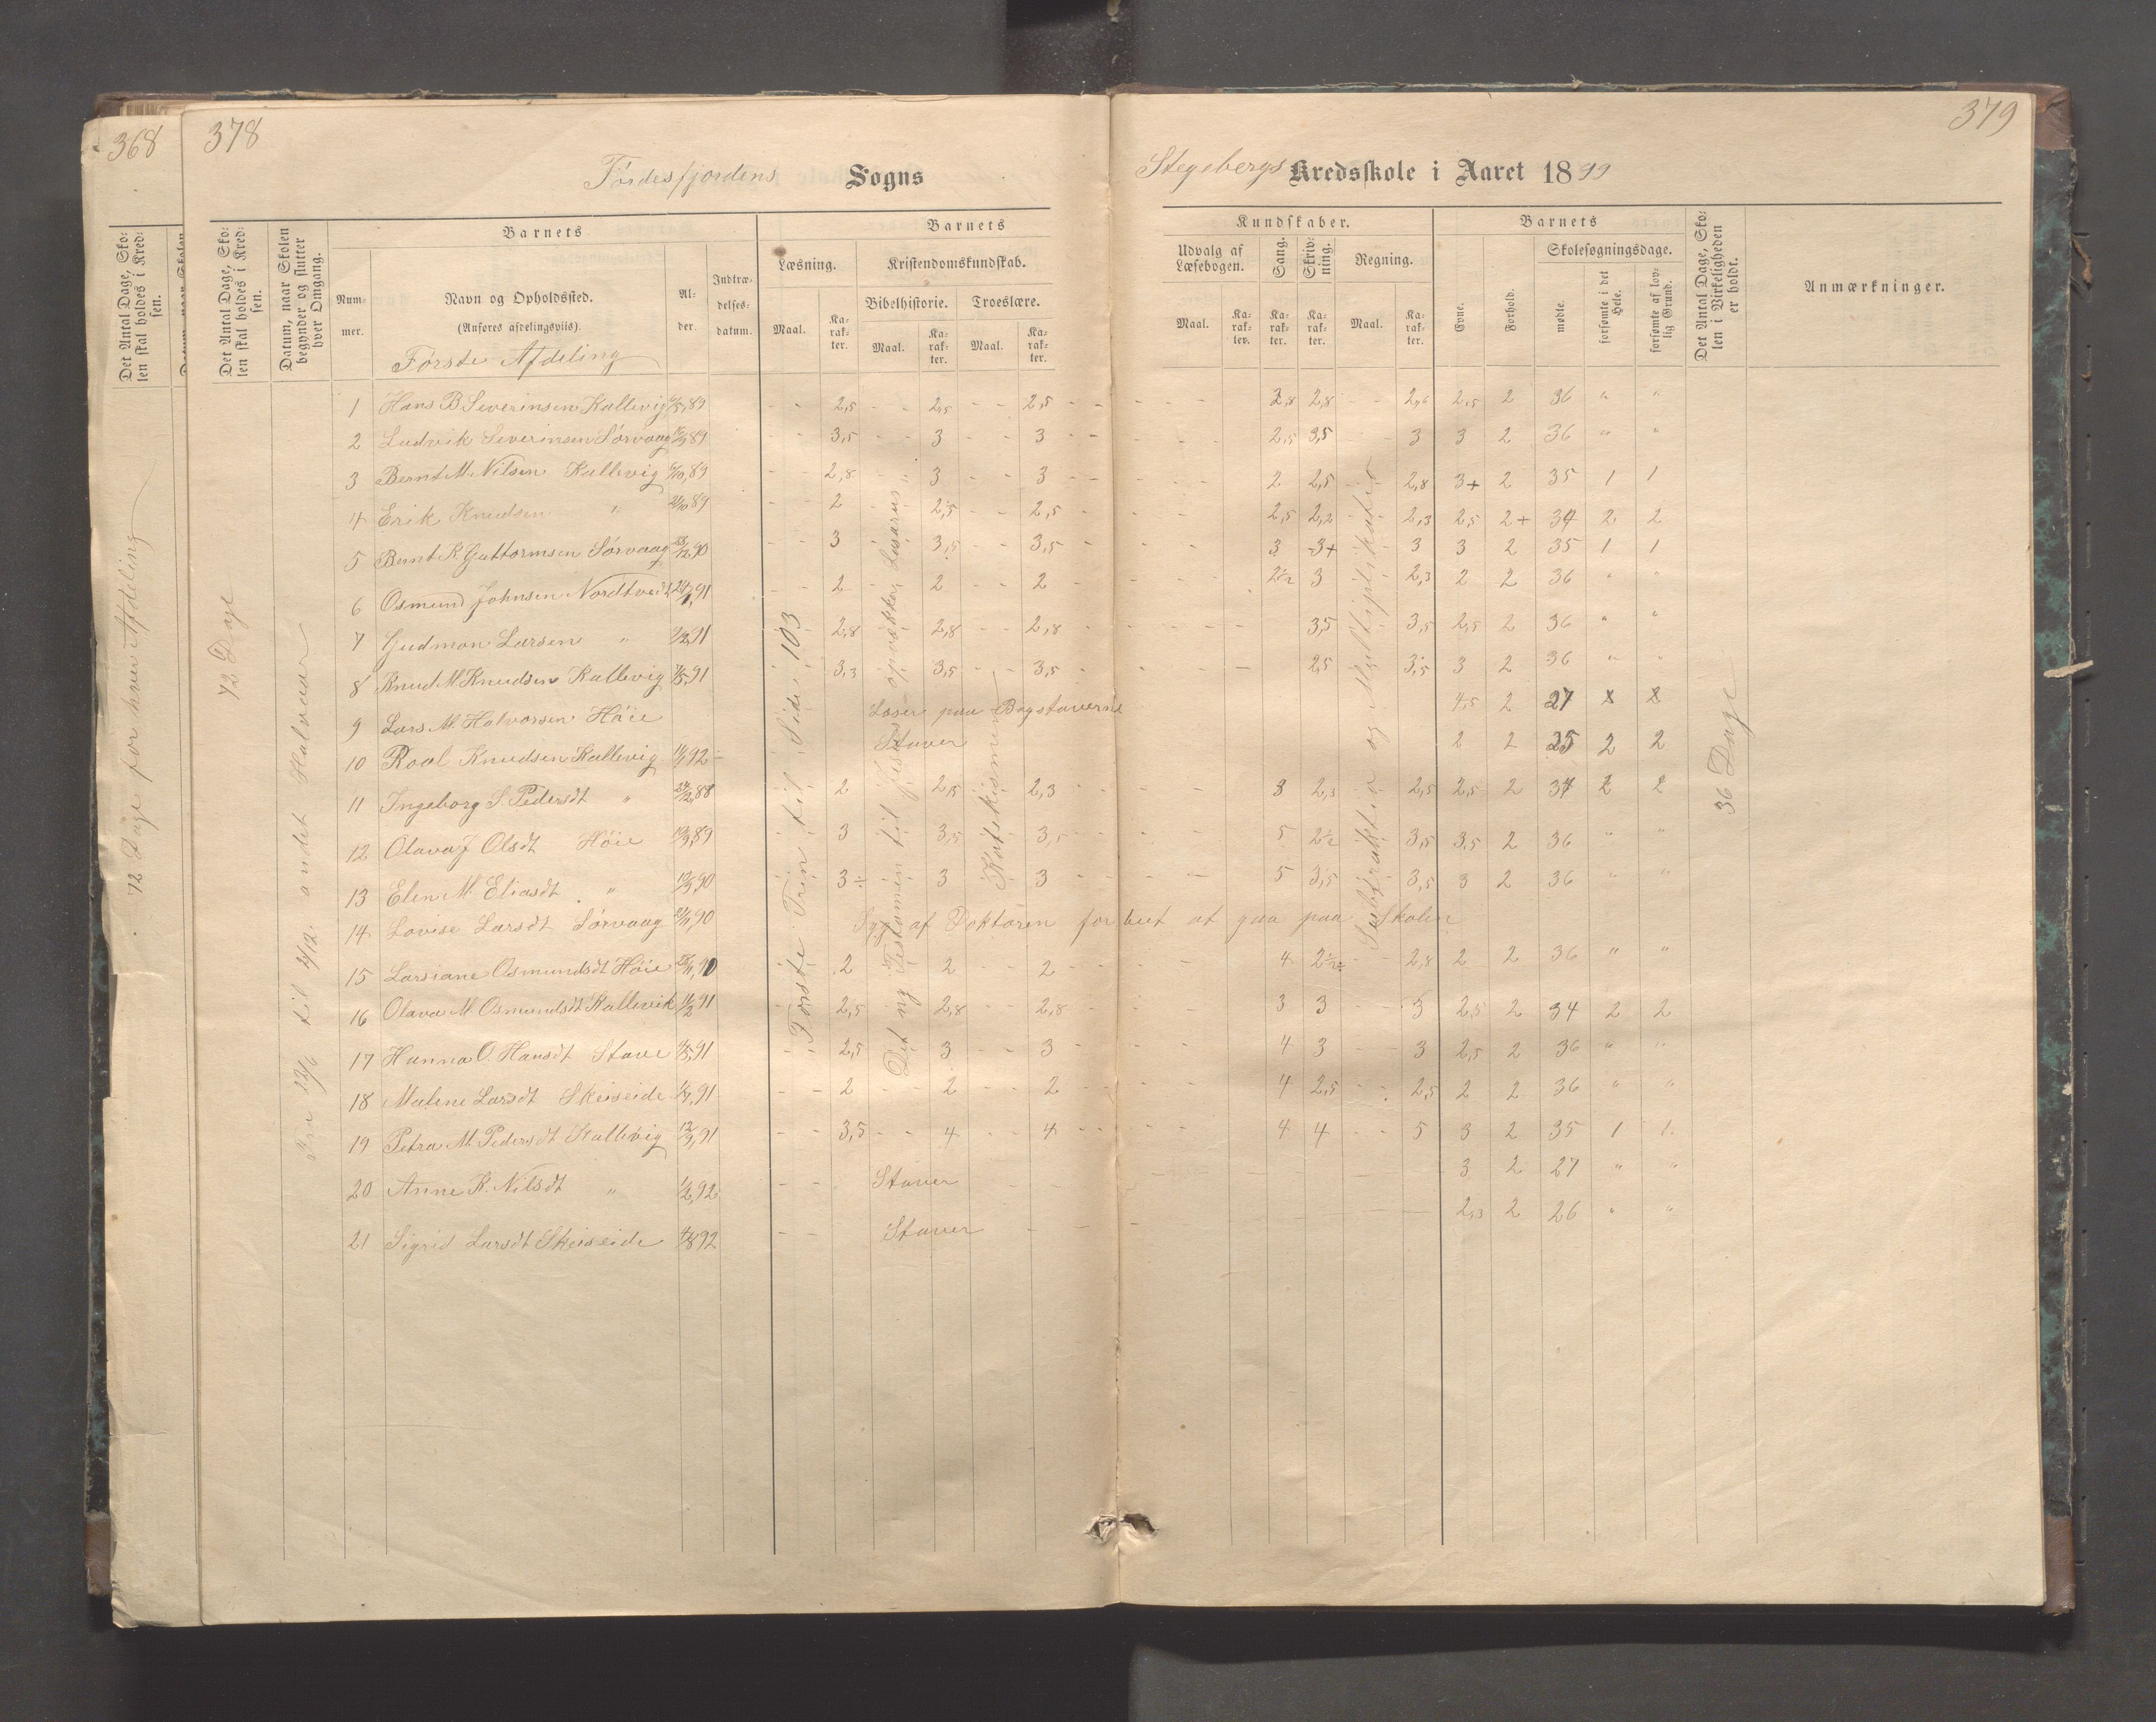 368
378
379
Førdesfjordens Sogns
Stegebergs Kredsskole i Aaret 1899
Det Antal Dage, Skolen skal holdes i Kredsen.
Det Antal Dage, Skolen skal holdes i Kredsen.
Datum, naar Skolen begynder og slutter hver Omgang.
Barnets
Num-
mer.
Navn og Opholdssted.
(Anføres afdelingsviis).
Al-
der.
Indtræ-
delses-
datum.
Barnets
Læsning.
Maal.
Ka-
rak-
ter.
Kristendomskundskab.
Bibelhistorie.
Troeslære.
Maal.
Ka-
rak-
ter.
Maal.
Ka-
rak-
ter.
Kundskaber.
Udvalg af
Læsebogen.
Sang.
Skriv-
ning.
Regning.
Maal.
Ka-
rak-
ter.
Ka-
rak-
ter.
Ka-
rak-
ter.
Maal.
Ka-
rak-
ter.
Barnets
Evne.
Forhold.
Skolesøgningsdage.
mødte.
forsømte i det
Hele.
forsømte af lov-
lig Grund.
Det Antal Dage, Sko-
len i Virkeligheden
er holdt.
Anmærkninger.
Første Afdeling
72 Dage for hver Afdeling
72 Dage
andet Halvaar
Første Trin til Side 103
Det ny Testamen til Jesus opvækker Lasarus"
Katekismen
Subtraktion og Multiplikation
36 Dage
1 Hans B Severinsen Kallevig 89 2,5 2,5 2,5 2,8 2,8 2,6 2,5 2 36 " "
2 Ludvik Severinsen Sørvaag 89 3,5 3 3 2,5 3,5 3 3 2 36 " "
3 Bernt M. Nilsen Kallevig 89 2,8 3 3 2 2,5 2,8 3+ 2 35 1 1
4 Erik Knudsen " 89 2 2,5 2,5 2,5 2,2 2,3 2,5 2+ 34 2 2
5 Bernt K. Guttormsen Sørvaag 90 3 3,5 3,5 3 3+ 3 3 2 35 1 1
6 Osmund Johnsen Nordtvedt 91 2 2 2 2½ 3 2,3 2 2 36 " "
7 Gudmon Larsen " 91 2,8 2,8 2,8 3,5 3,5 2,5 2 36 " "
8 Knud M. Knudsen Kallevig 91 3,3 3,5 3,5 2,5 3,5 3 2 36 " "
9 Lars M. Halvorsen Høie Læser paa Bogstaverne 4,5 2 27
10 Roal Knudsen Kallevig 92 Staver 2 2 25 2 2
11 Ingeborg S. Pedersdt " 88 2 2,5 2,3 3 2,3 2,5 2,5 2 34 2 2
12 Olava J Olsdt Høie 89 3 3,5 3,5 5 2½ 3,5 3,5 2 36 " "
13 Elen M. Eliasdt " 90 3÷ 3 3 5 3,5 3,5 3 2 36 " "
14 Lovise Larsdt Sørvaag 90 Syg af Doktoren forbut at gaa paa Skolen
15 Larsiane Osmundsdt Høie 90 2 2 2 4 2½ 2,8 2 2 36 " "
16 Olava M. Osmundsdt Kallevik 91 2,5 2,8 2,8 3 3 3 2,5 2 34 2 2
17 Hanna O. Hansdt Stave 91 2,5 3 3 4 3 3 2,5 2 36 " "
18 Malene Larsdt Skeiseide 91 2 2 2 4 2,5 2,5 2 2 36 " "
19 Petra M. Pedersdt Kallevig 91 3,5 4 4 4 4 5 3 2 35 1 1
20 Anne K. Nilsdt " 92 Staver 3 2 27 " "
21 Sigrid Larsdt Skeiseide 92 Staver 2,3 2 26 " "